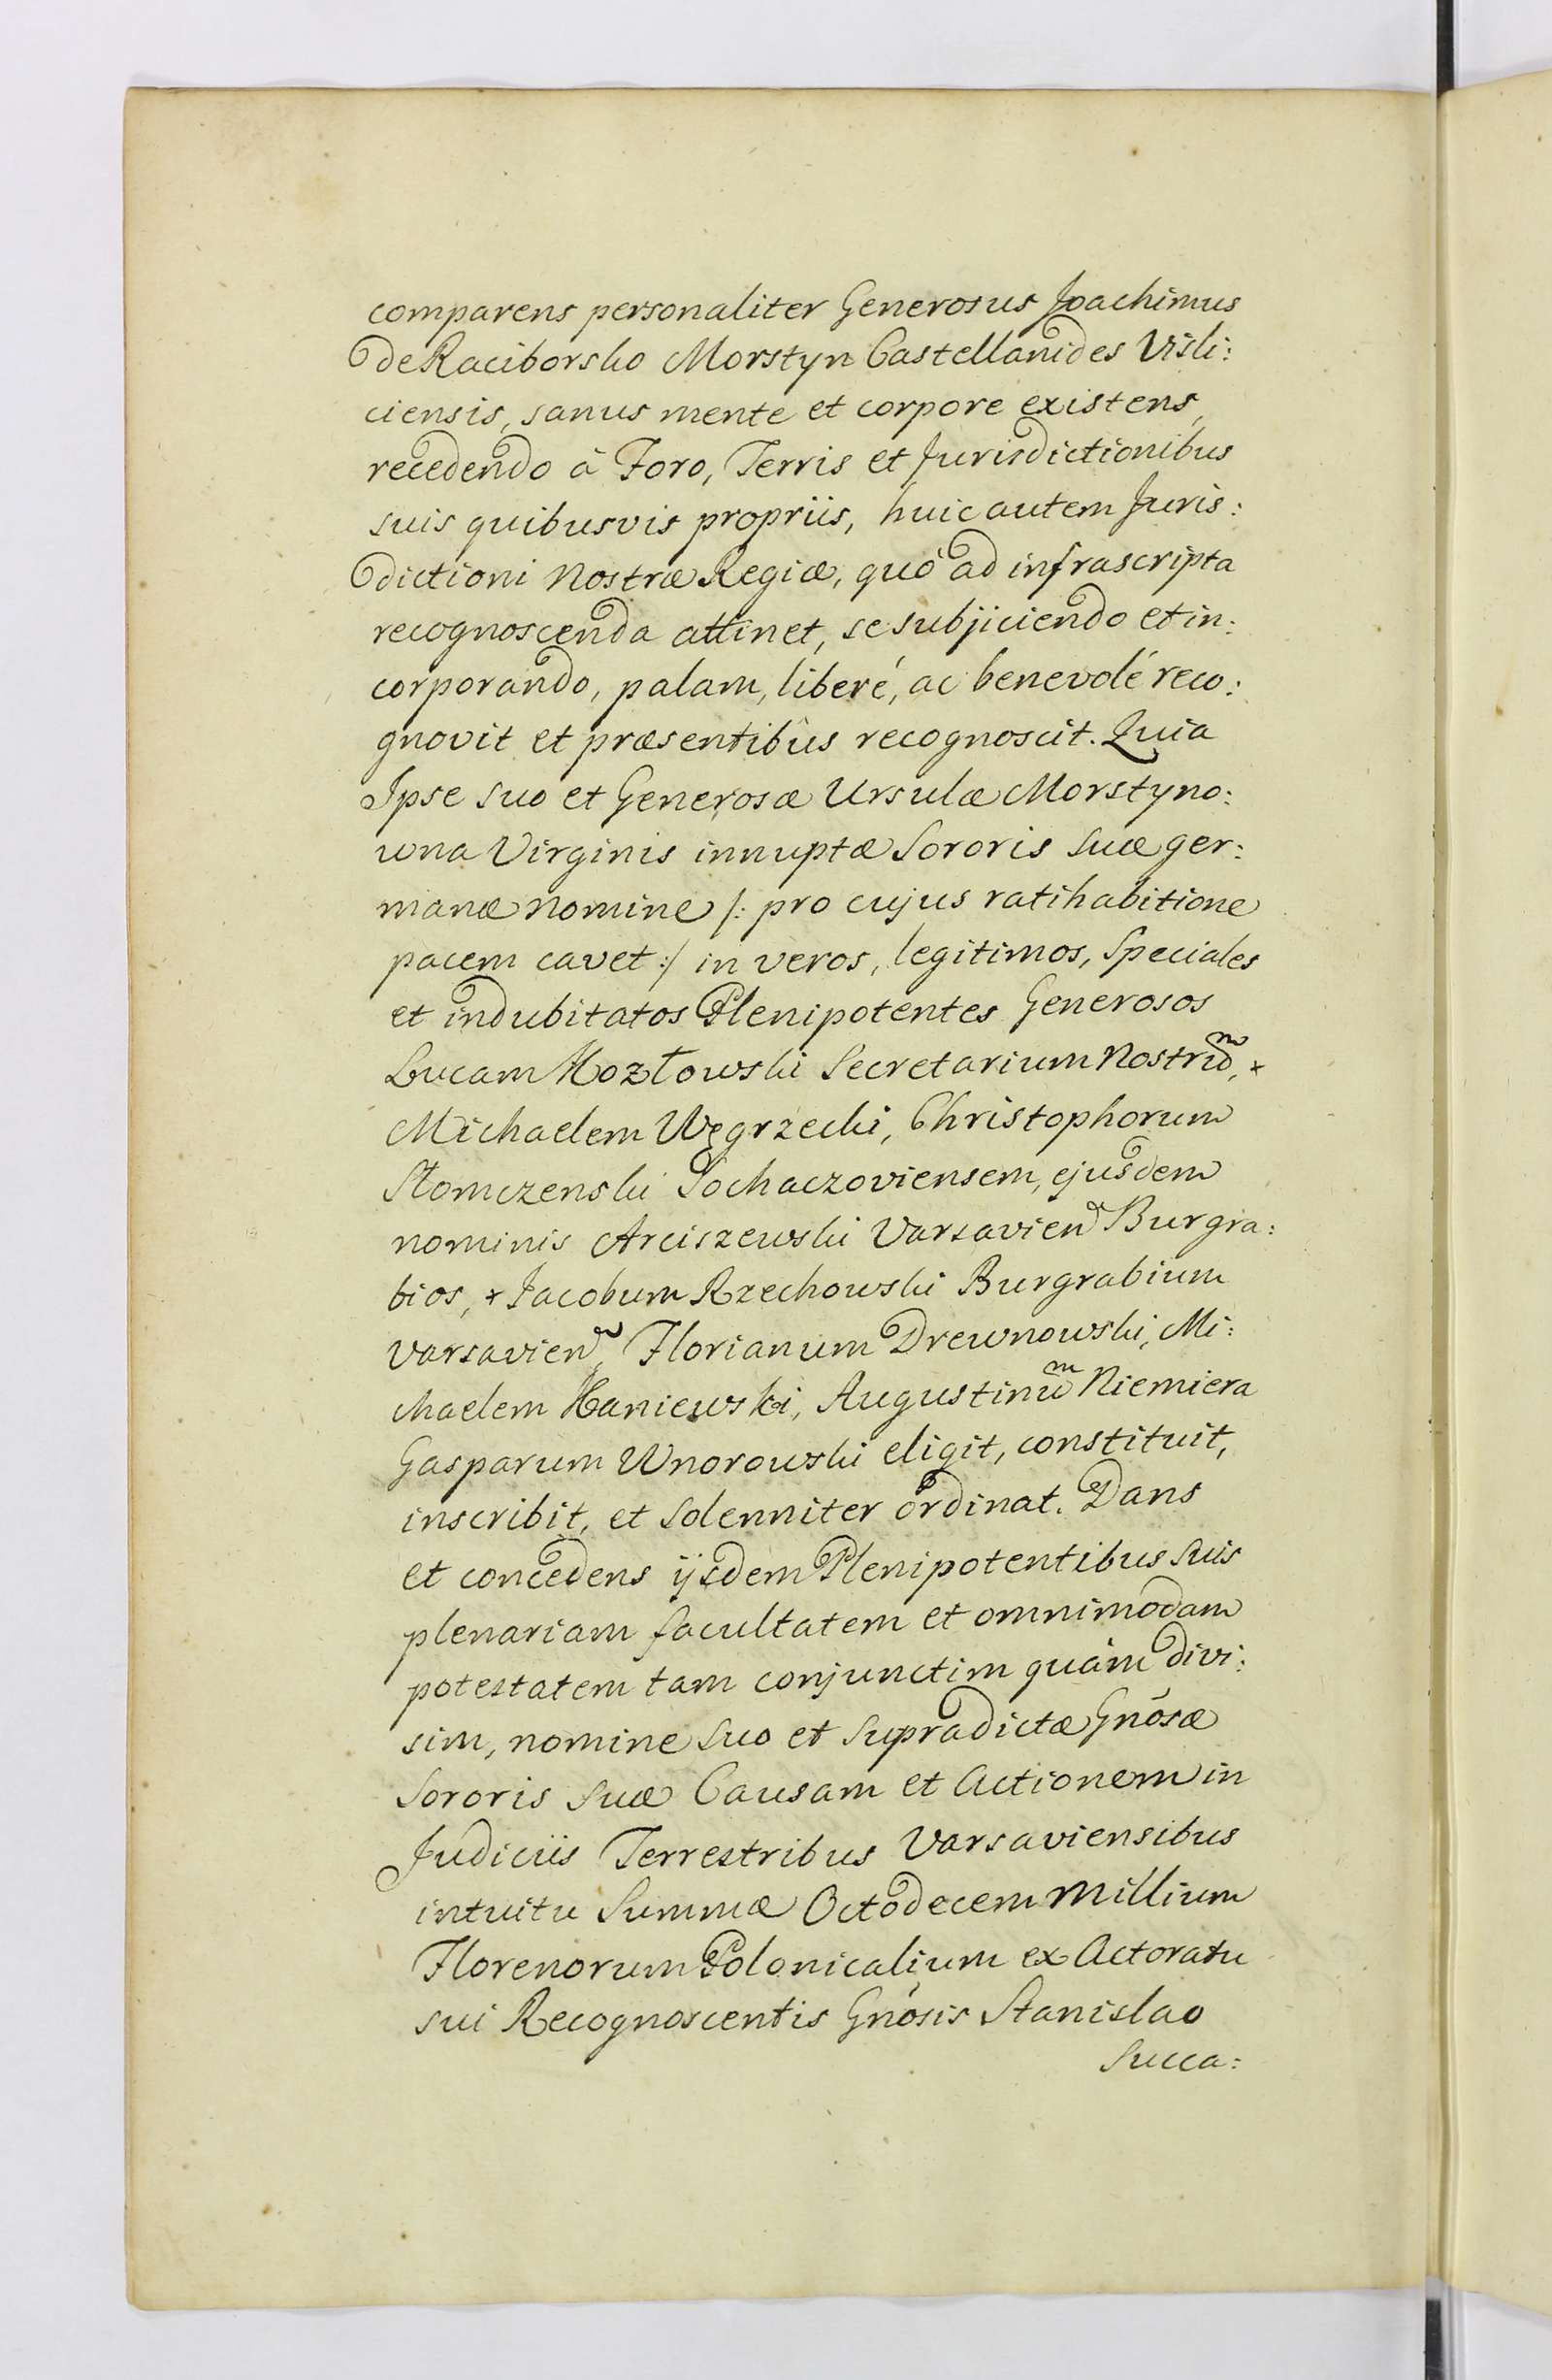 comparens personaliter Generosus Joachimus
de Raciborsko Morstyn Castellanides Visli:
ciensis, sanus mente et corpore existens,
recedendo à Foro, Terris et Jurisdictionibus
suis quibusvis propriis, huic autem Juris:
dictioni Nostræ Regiæ, quò ad infrascripta
recognoscenda attinet, se subjiciendo et in:
corporando, palam, liberé, ac benevolé reco:
gnovit et præsentibûs recognoscit. Quia
Ipse suo et Generosæ Ursulæ Morstyno:
wna Virginis innuptæ Sororis suæ ger:
manæ nomine /: pro cujus ratihabitione
pacem cavet :/ in veros, legitimos, Speciales
et indubitatos Plenipotentes Generosos
Lucam Kozłowski Secretarium Nostrũm, +
Michaelem Węgrzecki, Christophorum
Słomczenski Sochaczoviensem, ejusdem
nominis Arciszewski Varsavien Burgra:
bios, + Jacobum Rzechowski Burgrabium
Varsavien, Florianum Drewnowski, Mi:
chaelem Haniewski, Augustinũm Niemiera
Gasparum Wnorowski eligit, constituit,
inscribit, et solenniter ordinat. Dans
et concedens ijsdem Plenipotentibus suis
plenariam facultatem et omnimodam
potestatem tam conjunctim quàm divi:
sim, nomine suo et supradictæ Gnosæ
Sororis suæ Causam et Actionem in
Judiciis Terrestribus Varsaviensibus
intuitu Summæ Octodecem Millium
Florenorum Polonicalium ex Actoratu
sui Recognoscentis Gnosis Stanislao
Succa: